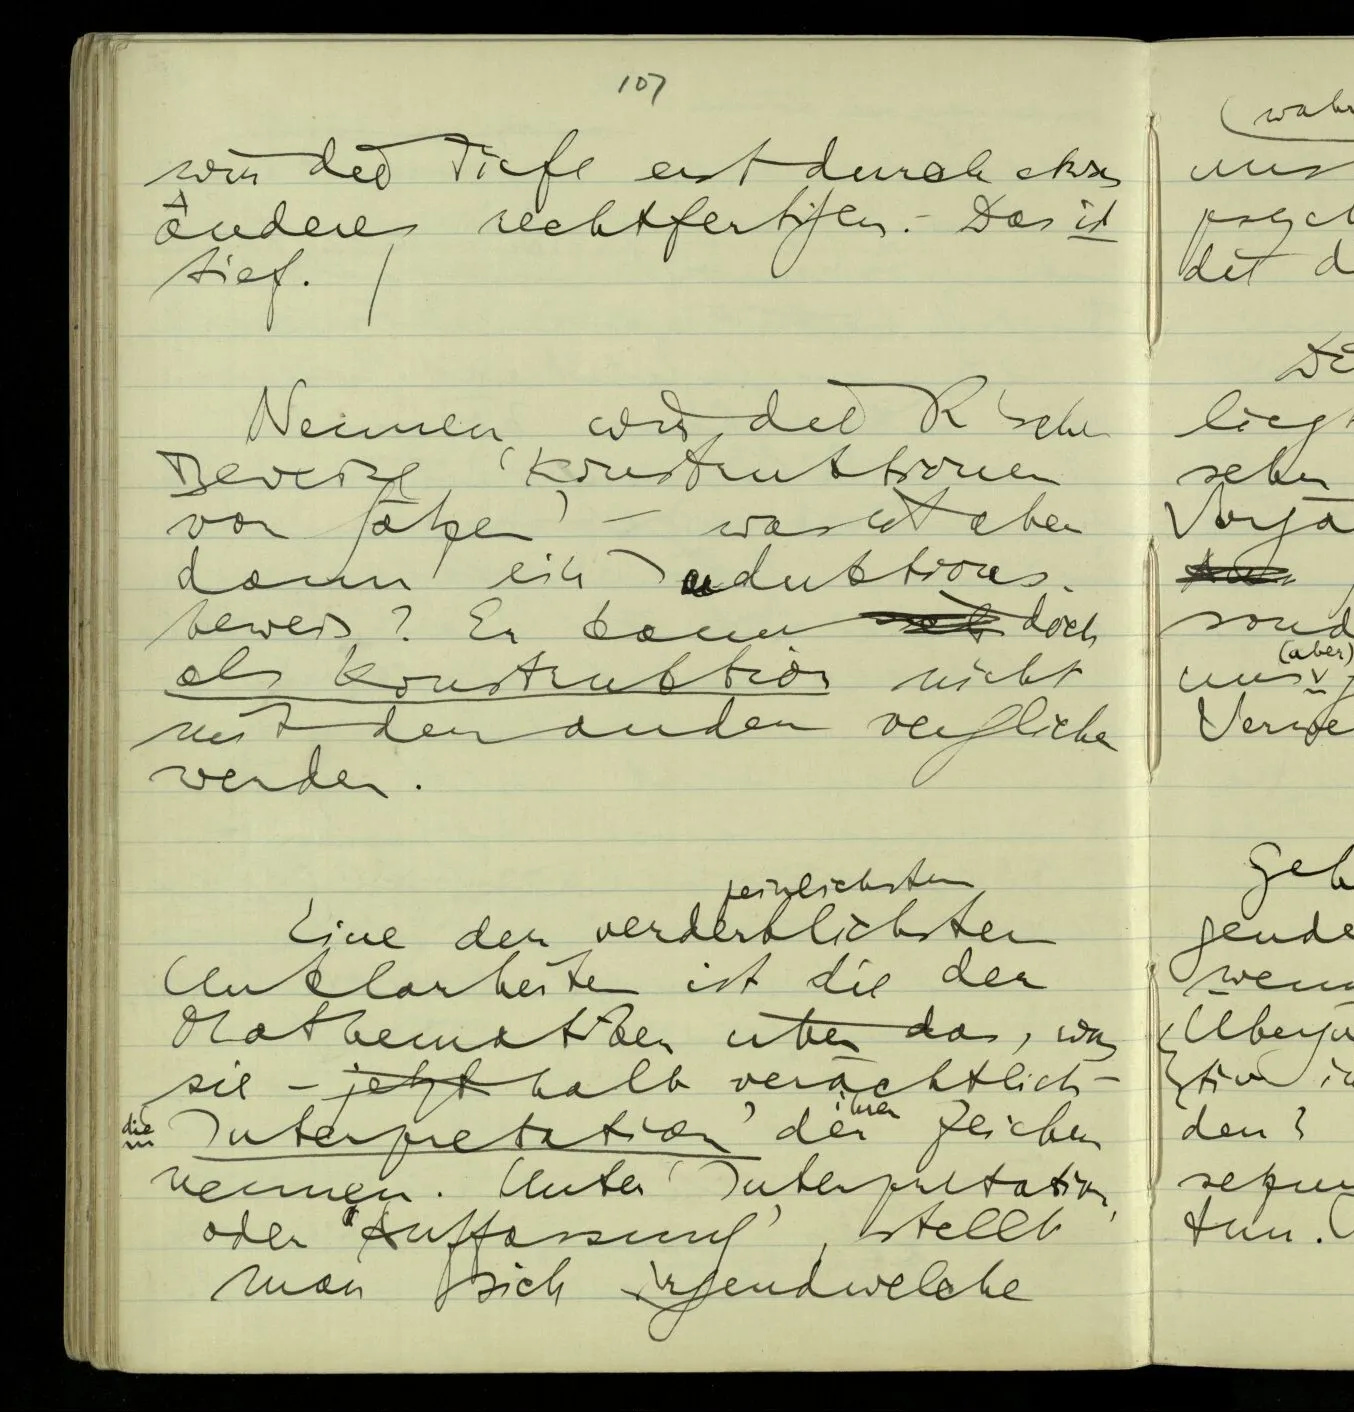 107
wir die Tiefe erst durch etwas
Anderes rechtfertigen. – Das ist
tief. /
Nennen wir die R'schen
Beweise 'Konstruktionen
von Sätzen' – was ist aber
dann ein Induktions-
beweis? Er kann doch
als Konstruktion nicht
mit den andern verglichen
werden.
peinlichsten
Eine der verderblichsten
Unklarheiten ist die der
Mathematiker über das, was
sie – jetzt halb verächtlich –
die 'Interpretation' der ihrer Zeichen
nennen. Unter 'Interpretation'
oder 'Auffassung', stellt
man sich irgendwelche
(wahr
uns
psych
det d
Di
liegt
sehen
Vorgä
sond
(aber)
uns
Verwe
Geh
gende
wenn
Überga
tiv in
den?
tun.